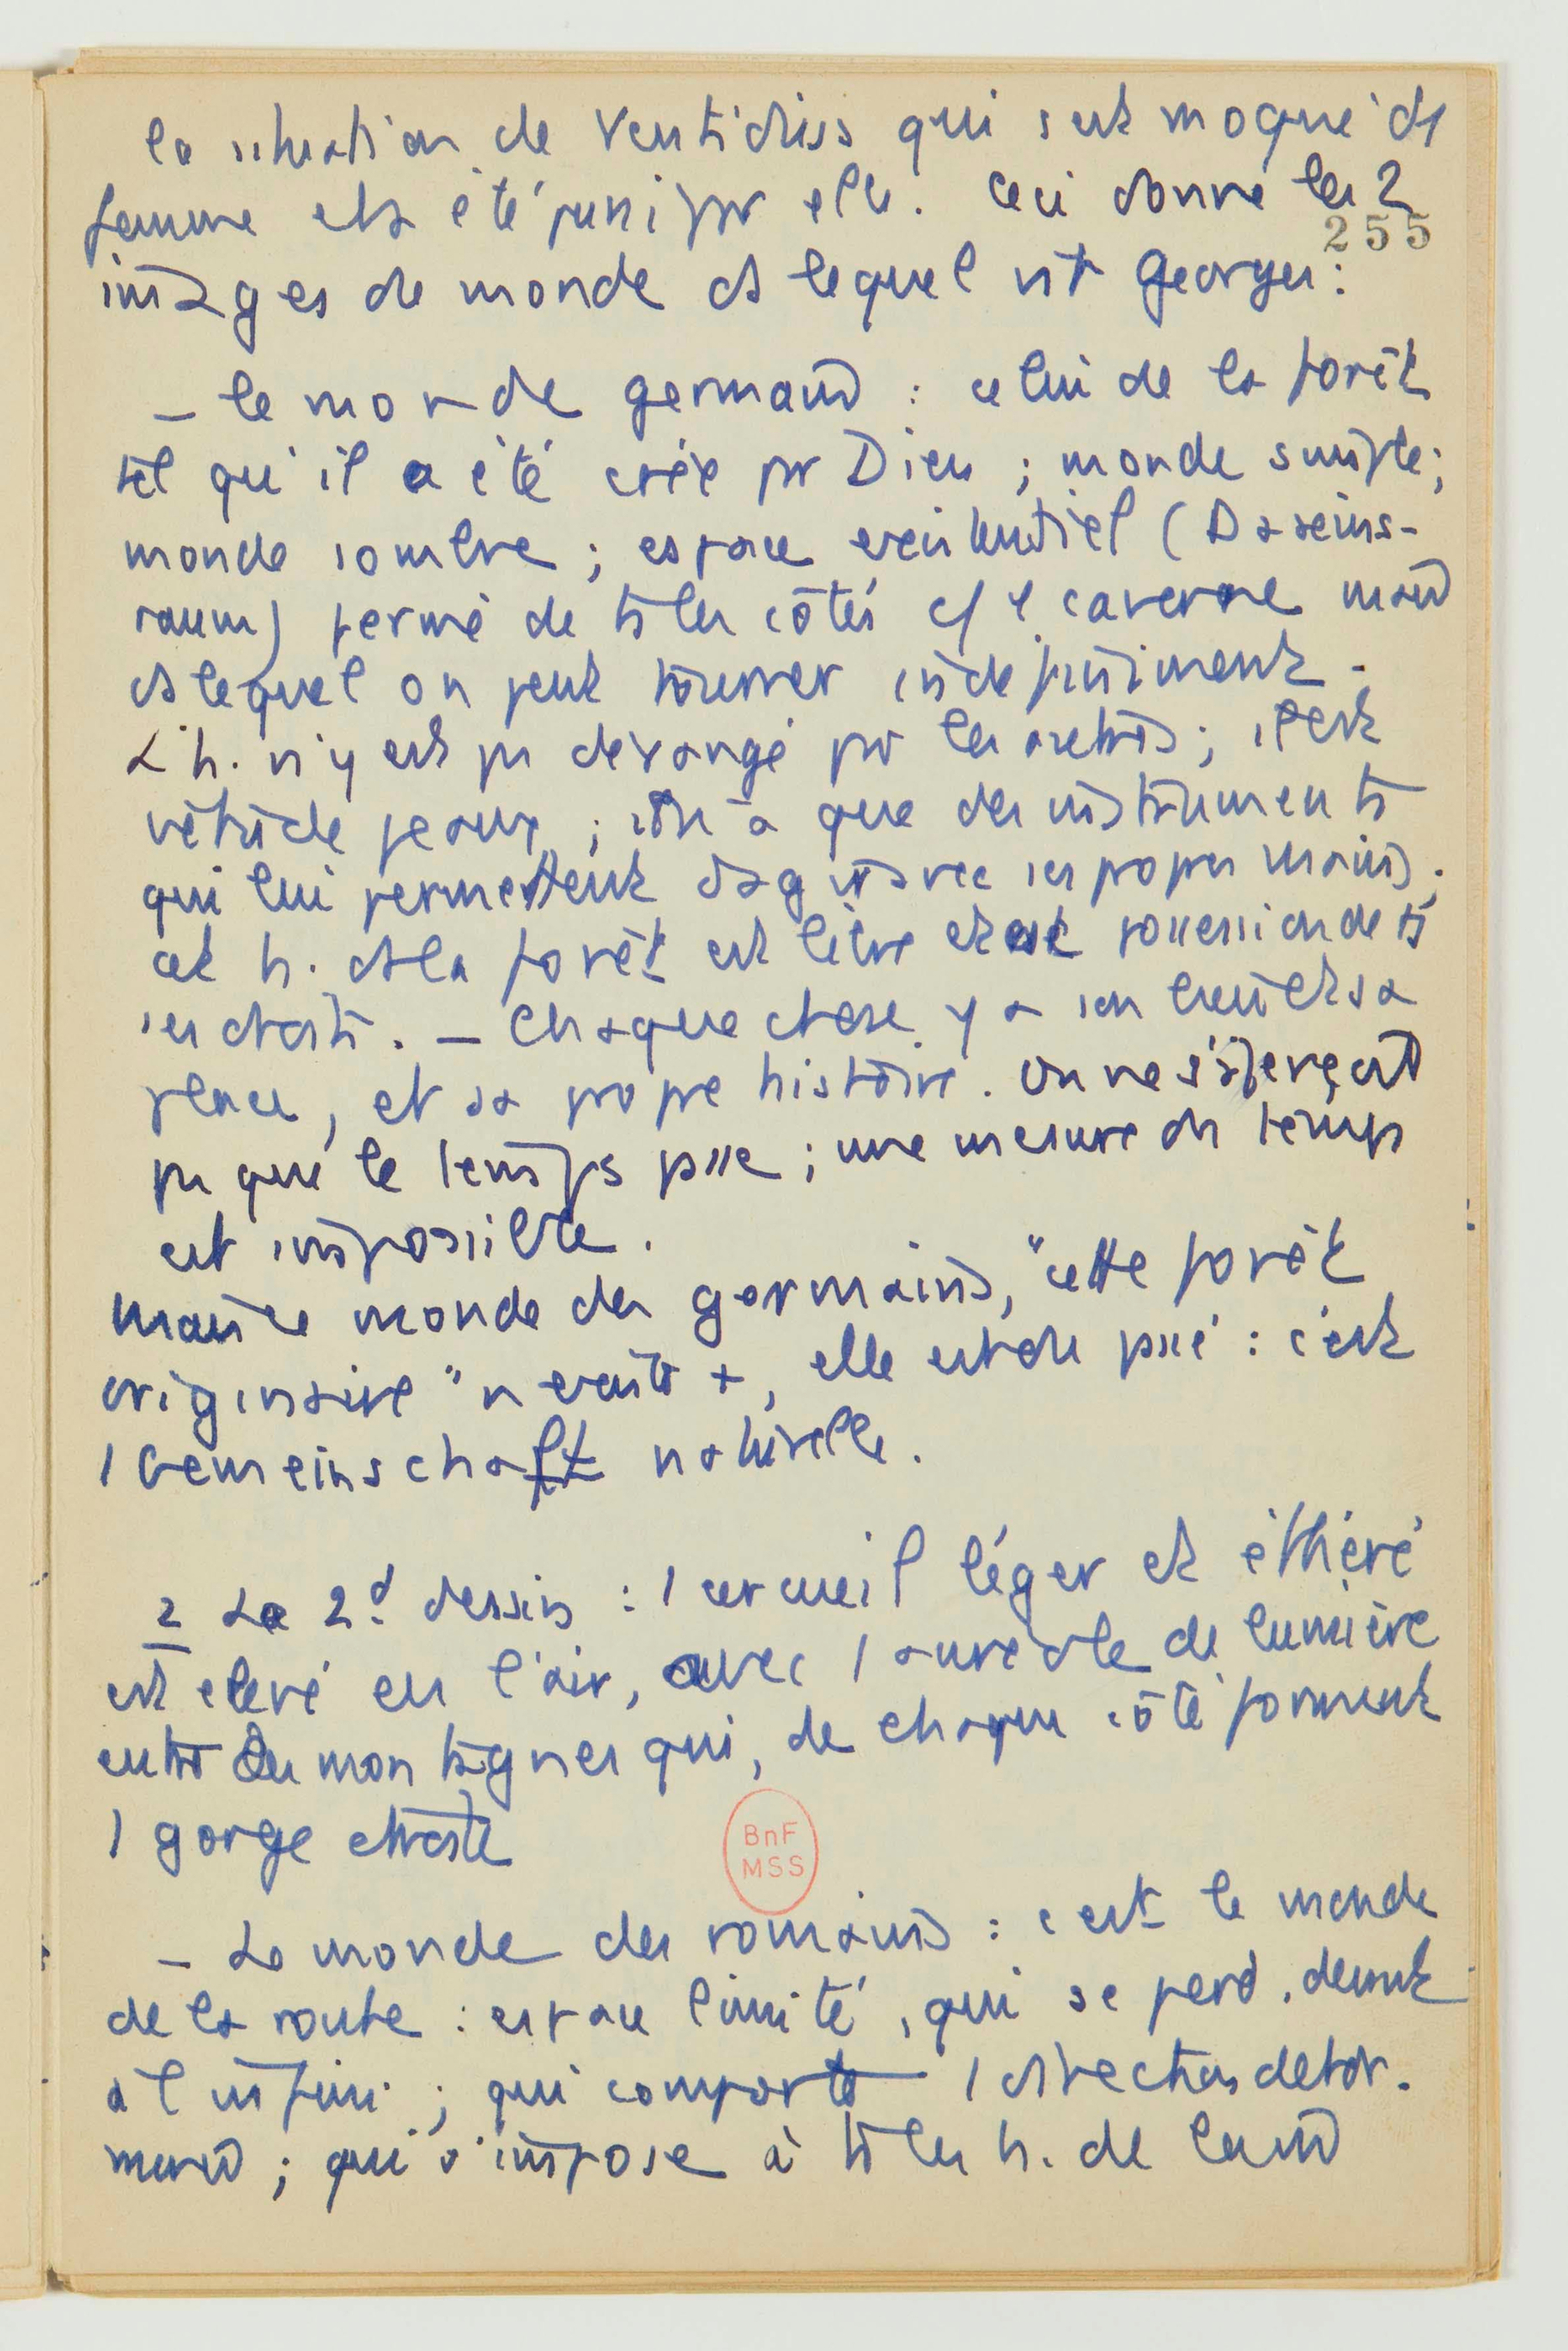 la situation de Ventidius qui s'est moqué d'1
femme et a été puni par elle. Ceci donne les 2
255
images de monde ds lequel vit Georges :
– le monde germain : celui de la forêt
tel qu'il a été créé par Dieu ; monde simple ;
monde sombre ; espace existentiel (Daseins-
raum) fermé de ts les côtés c/ 1 caverne mais
ds lequel on peut tourner indéfiniment.
L'h. n'y est pas dérangé par les autres ; il est
vêtu de peaux ; il n'a que des instruments
qui lui permettent d'agir avec ses propres mains ;
cet h. ds la forêt est libre et est possession de ts
ses droits. – Chaque chose y a son lieu et sa
place, et sa propre histoire. On ne s'aperçoit
pas que le temps passe ; une mesure du temps
est impossible.
Mais ce monde des germains, "cette forêt
originaire" n'existe +, elle est du passé : c'est
1 Gemeinschaft naturelle.
2 Le 2d dessin : 1 cercueil léger et éthéré
est élevé en l'air, avec 1 auréole de lumière
entre des montagnes qui, de chaque côté forment
1 gorge étroite
BnF
MSS
– Le monde des romains : c'est le monde
de la route : espace limité, qui se perd devant
à l'infini ; qui comporte 1 direction déter-
minée ; qui s'impose à ts les h. de la